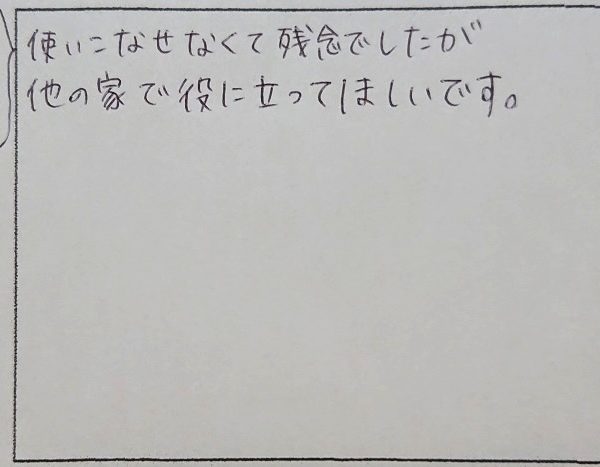 使いこなせなくて残念でしたが
他の家で役に立ってほしいです。